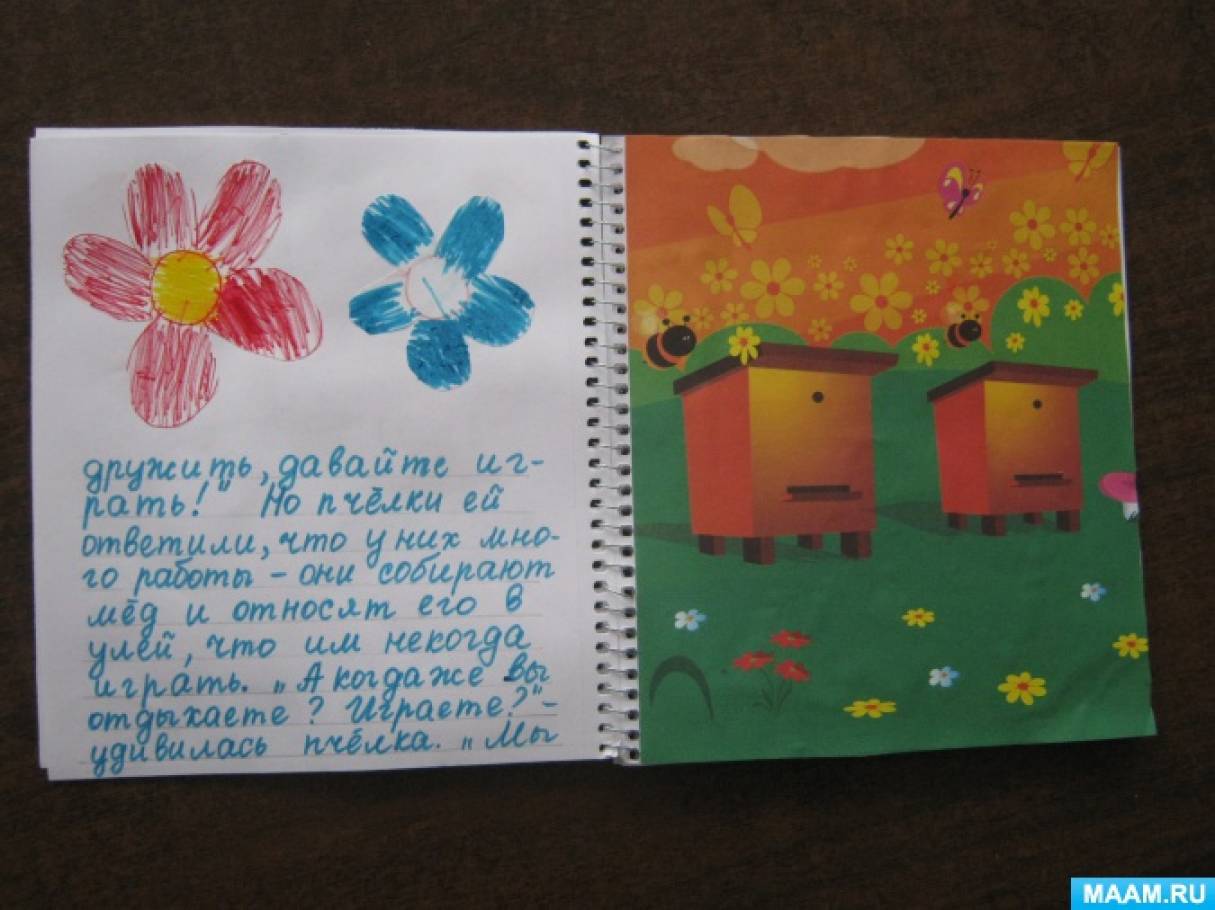 дружить, давайте иг-
рать!" Но пчёлки ей
ответили, что у них мно-
го работы – они собирают
мёд и относят его в
улей, что им некогда
играть. „А когда же вы
отдыхаете? Играете?"-
удивилась пчёлка. „Мы
MAAM.RU